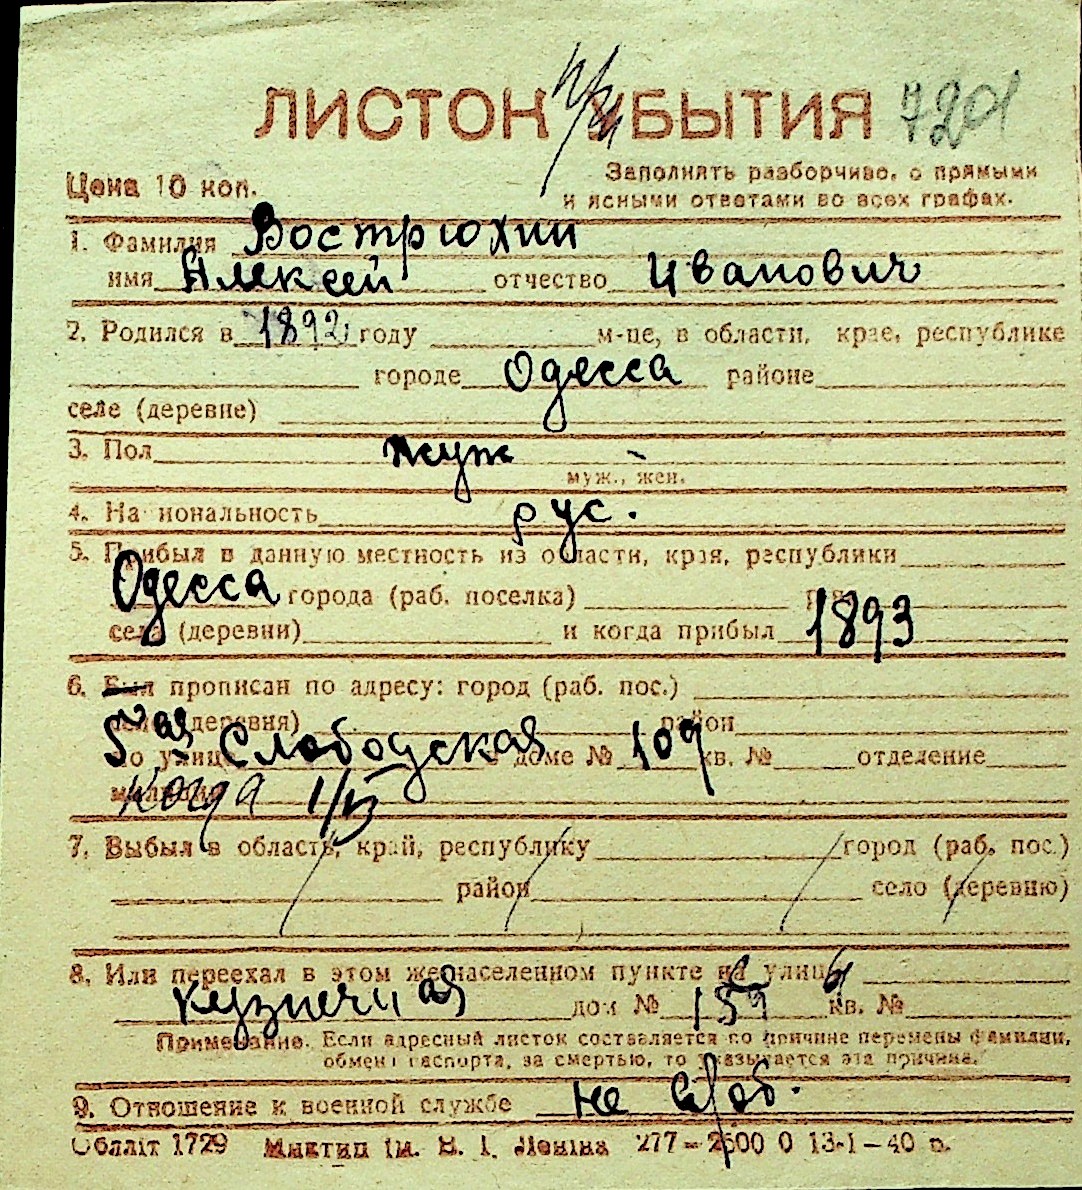 ЛИСТОК УБЫТИЯ 720
Цена 10 коп.
Заполнять разборчиво, с прямыми
и ясными ответами во всех графах.
1. Фамилия Вострюхин
имя Алексей отчество Иванович
2. Родился в 1892 году м-це, в области, крае, республике
городе Одесса районе
селе (деревне)
3. Пол муж
муж., жен.
4. Национальность рус.
5. Прибыл в данную местность из области, края, республики
Одесса города (раб. поселка)
села (деревни) и когда прибыл 1893
6. Был прописан по адресу: город (раб. пос.)
село (деревня) район
5ая по улице Слободская доме № 109 кв. № отделение
милиции когда
7. Выбыл в область, край, республику город (раб. пос.)
район село (деревню)
8. Или переехал в этом же населенном пункте на улицу
Кузнечная дом № 159 кв. №
Примечание. Если адресный листок составляется по причине перемены фамилии,
обмен паспорта, за смертью, то указывается эта причина.
9. Отношение к военной службе не
Обллiт 1729 Миктип iм. В. I. Ленiна 277—2600 0 13-I—40 р.